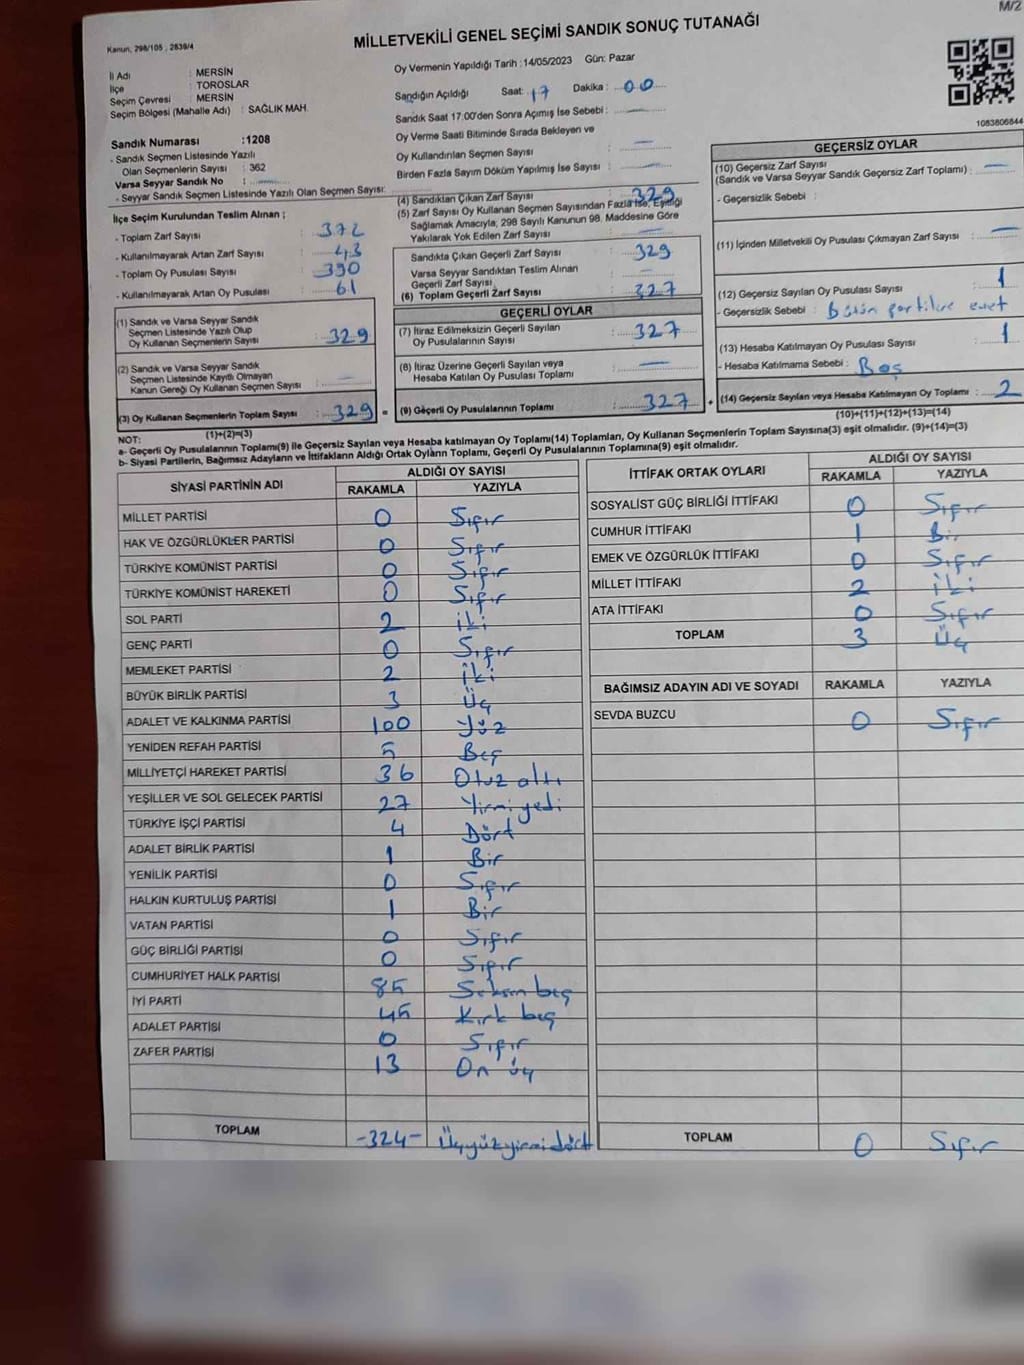 M/2
Kanun, 298/105 , 2839/4
MİLLETVEKİLİ GENEL SEÇİMİ SANDIK SONUÇ TUTANAĞI
İl Adı : MERSİN
İlçe : TOROSLAR
Seçim Çevresi : MERSİN
Seçim Bölgesi (Mahalle Adı) : SAĞLIK MAH.
Sandık Numarası : 1208
- Sandık Seçmen Listesinde Yazılı
Olan Seçmenlerin Sayısı : 362
Varsa Seyyar Sandık No : —
- Seyyar Sandık Seçmen Listesinde Yazılı Olan Seçmen Sayısı:
İlçe Seçim Kurulundan Teslim Alınan ;
- Toplam Zarf Sayısı : 372
- Kullanılmayarak Artan Zarf Sayısı : 43
- Toplam Oy Pusulası Sayısı : 390
- Kullanılmayarak Artan Oy Pusulası : 61
(1) Sandık ve Varsa Seyyar Sandık
Seçmen Listesinde Yazılı Olup
Oy Kullanan Seçmenlerin Sayısı : 329
(2) Sandık ve Varsa Seyyar Sandık
Seçmen Listesinde Kayıtlı Olmayan
Kanun Gereği Oy Kullanan Seçmen Sayısı : —
(3) Oy Kullanan Seçmenlerin Toplam Sayısı : 329 =
(1)+(2)=(3)
Oy Vermenin Yapıldığı Tarih : 14/05/2023 Gün: Pazar
Sandığın Açıldığı Saat: 17 Dakika : 00
Sandık Saat 17:00'den Sonra Açımış İse Sebebi : —
Oy Verme Saati Bitiminde Sırada Bekleyen ve
Oy Kullandırılan Seçmen Sayısı : —
Birden Fazla Sayım Döküm Yapılmış İse Sayısı : —
(4) Sandıktan Çıkan Zarf Sayısı : 329
(5) Zarf Sayısı Oy Kullanan Seçmen Sayısından Fazla İse, Eşitliği
Sağlamak Amacıyla, 298 Sayılı Kanunun 98. Maddesine Göre
Yakılarak Yok Edilen Zarf Sayısı : —
Sandıkta Çıkan Geçerli Zarf Sayısı : 329
Varsa Seyyar Sandıktan Teslim Alınan
Geçerli Zarf Sayısı : —
(6) Toplam Geçerli Zarf Sayısı : 327
GEÇERLİ OYLAR
(7) İtiraz Edilmeksizin Geçerli Sayılan
Oy Pusulalarının Sayısı : 327
(8) İtiraz Üzerine Geçerli Sayılan veya
Hesaba Katılan Oy Pusulası Toplamı : —
(9) Geçerli Oy Pusulalarının Toplamı : 327 +
1083806844
GEÇERSİZ OYLAR
(10) Geçersiz Zarf Sayısı
(Sandık ve Varsa Seyyar Sandık Geçersiz Zarf Toplamı) : —
- Geçersizlik Sebebi :
(11) İçinden Milletvekili Oy Pusulası Çıkmayan Zarf Sayısı : —
(12) Geçersiz Sayılan Oy Pusulası Sayısı : 1
- Geçersizlik Sebebi : Bütün partilere evet
(13) Hesaba Katılmayan Oy Pusulası Sayısı : 1
- Hesaba Katılmama Sebebi : Boş
(14) Geçersiz Sayılan veya Hesaba Katılmayan Oy Toplamı : 2
(10)+(11)+(12)+(13)=(14)
NOT:
a- Geçerli Oy Pusulalarının Toplamı(9) ile Geçersiz Sayılan veya Hesaba katılmayan Oy Toplamı(14) Toplamları, Oy Kullanan Seçmenlerin Toplam Sayısına(3) eşit olmalıdır. (9)+(14)=(3)
b- Siyasi Partilerin, Bağımsız Adayların ve İttifakların Aldığı Ortak Oyların Toplamı, Geçerli Oy Pusulalarının Toplamına(9) eşit olmalıdır.
SİYASİ PARTİNİN ADI ALDIĞI OY SAYISI
RAKAMLA YAZIYLA
MİLLET PARTİSİ 0 Sıfır
HAK VE ÖZGÜRLÜKLER PARTİSİ 0 Sıfır
TÜRKİYE KOMÜNİST PARTİSİ 0 Sıfır
TÜRKİYE KOMÜNİST HAREKETİ 0 Sıfır
SOL PARTİ 2 iki
GENÇ PARTİ 0 Sıfır
MEMLEKET PARTİSİ 2 iki
BÜYÜK BİRLİK PARTİSİ 3 Üç
ADALET VE KALKINMA PARTİSİ 100 Yüz
YENİDEN REFAH PARTİSİ 5 Beş
MİLLİYETÇİ HAREKET PARTİSİ 36 Otuz altı
YEŞİLLER VE SOL GELECEK PARTİSİ 27 Yirmi yedi
TÜRKİYE İŞÇİ PARTİSİ 4 Dört
ADALET BİRLİK PARTİSİ 1 Bir
YENİLİK PARTİSİ 0 Sıfır
HALKIN KURTULUŞ PARTİSİ 1 Bir
VATAN PARTİSİ 0 Sıfır
GÜÇ BİRLİĞİ PARTİSİ 0 Sıfır
CUMHURİYET HALK PARTİSİ 85 Seksen beş
İYİ PARTİ 45 Kırk beş
ADALET PARTİSİ 0 Sıfır
ZAFER PARTİSİ 13 On üç
TOPLAM -324- Üçyüzyirmidört
İTTİFAK ORTAK OYLARI ALDIĞI OY SAYISI
RAKAMLA YAZIYLA
SOSYALİST GÜÇ BİRLİĞİ İTTİFAKI 0 Sıfır
CUMHUR İTTİFAKI 1 Bir
EMEK VE ÖZGÜRLÜK İTTİFAKI 0 Sıfır
MİLLET İTTİFAKI 2 iki
ATA İTTİFAKI 0 Sıfır
TOPLAM 3 Üç
BAĞIMSIZ ADAYIN ADI VE SOYADI RAKAMLA YAZIYLA
SEVDA BUZCU 0 Sıfır
TOPLAM 0 Sıfır